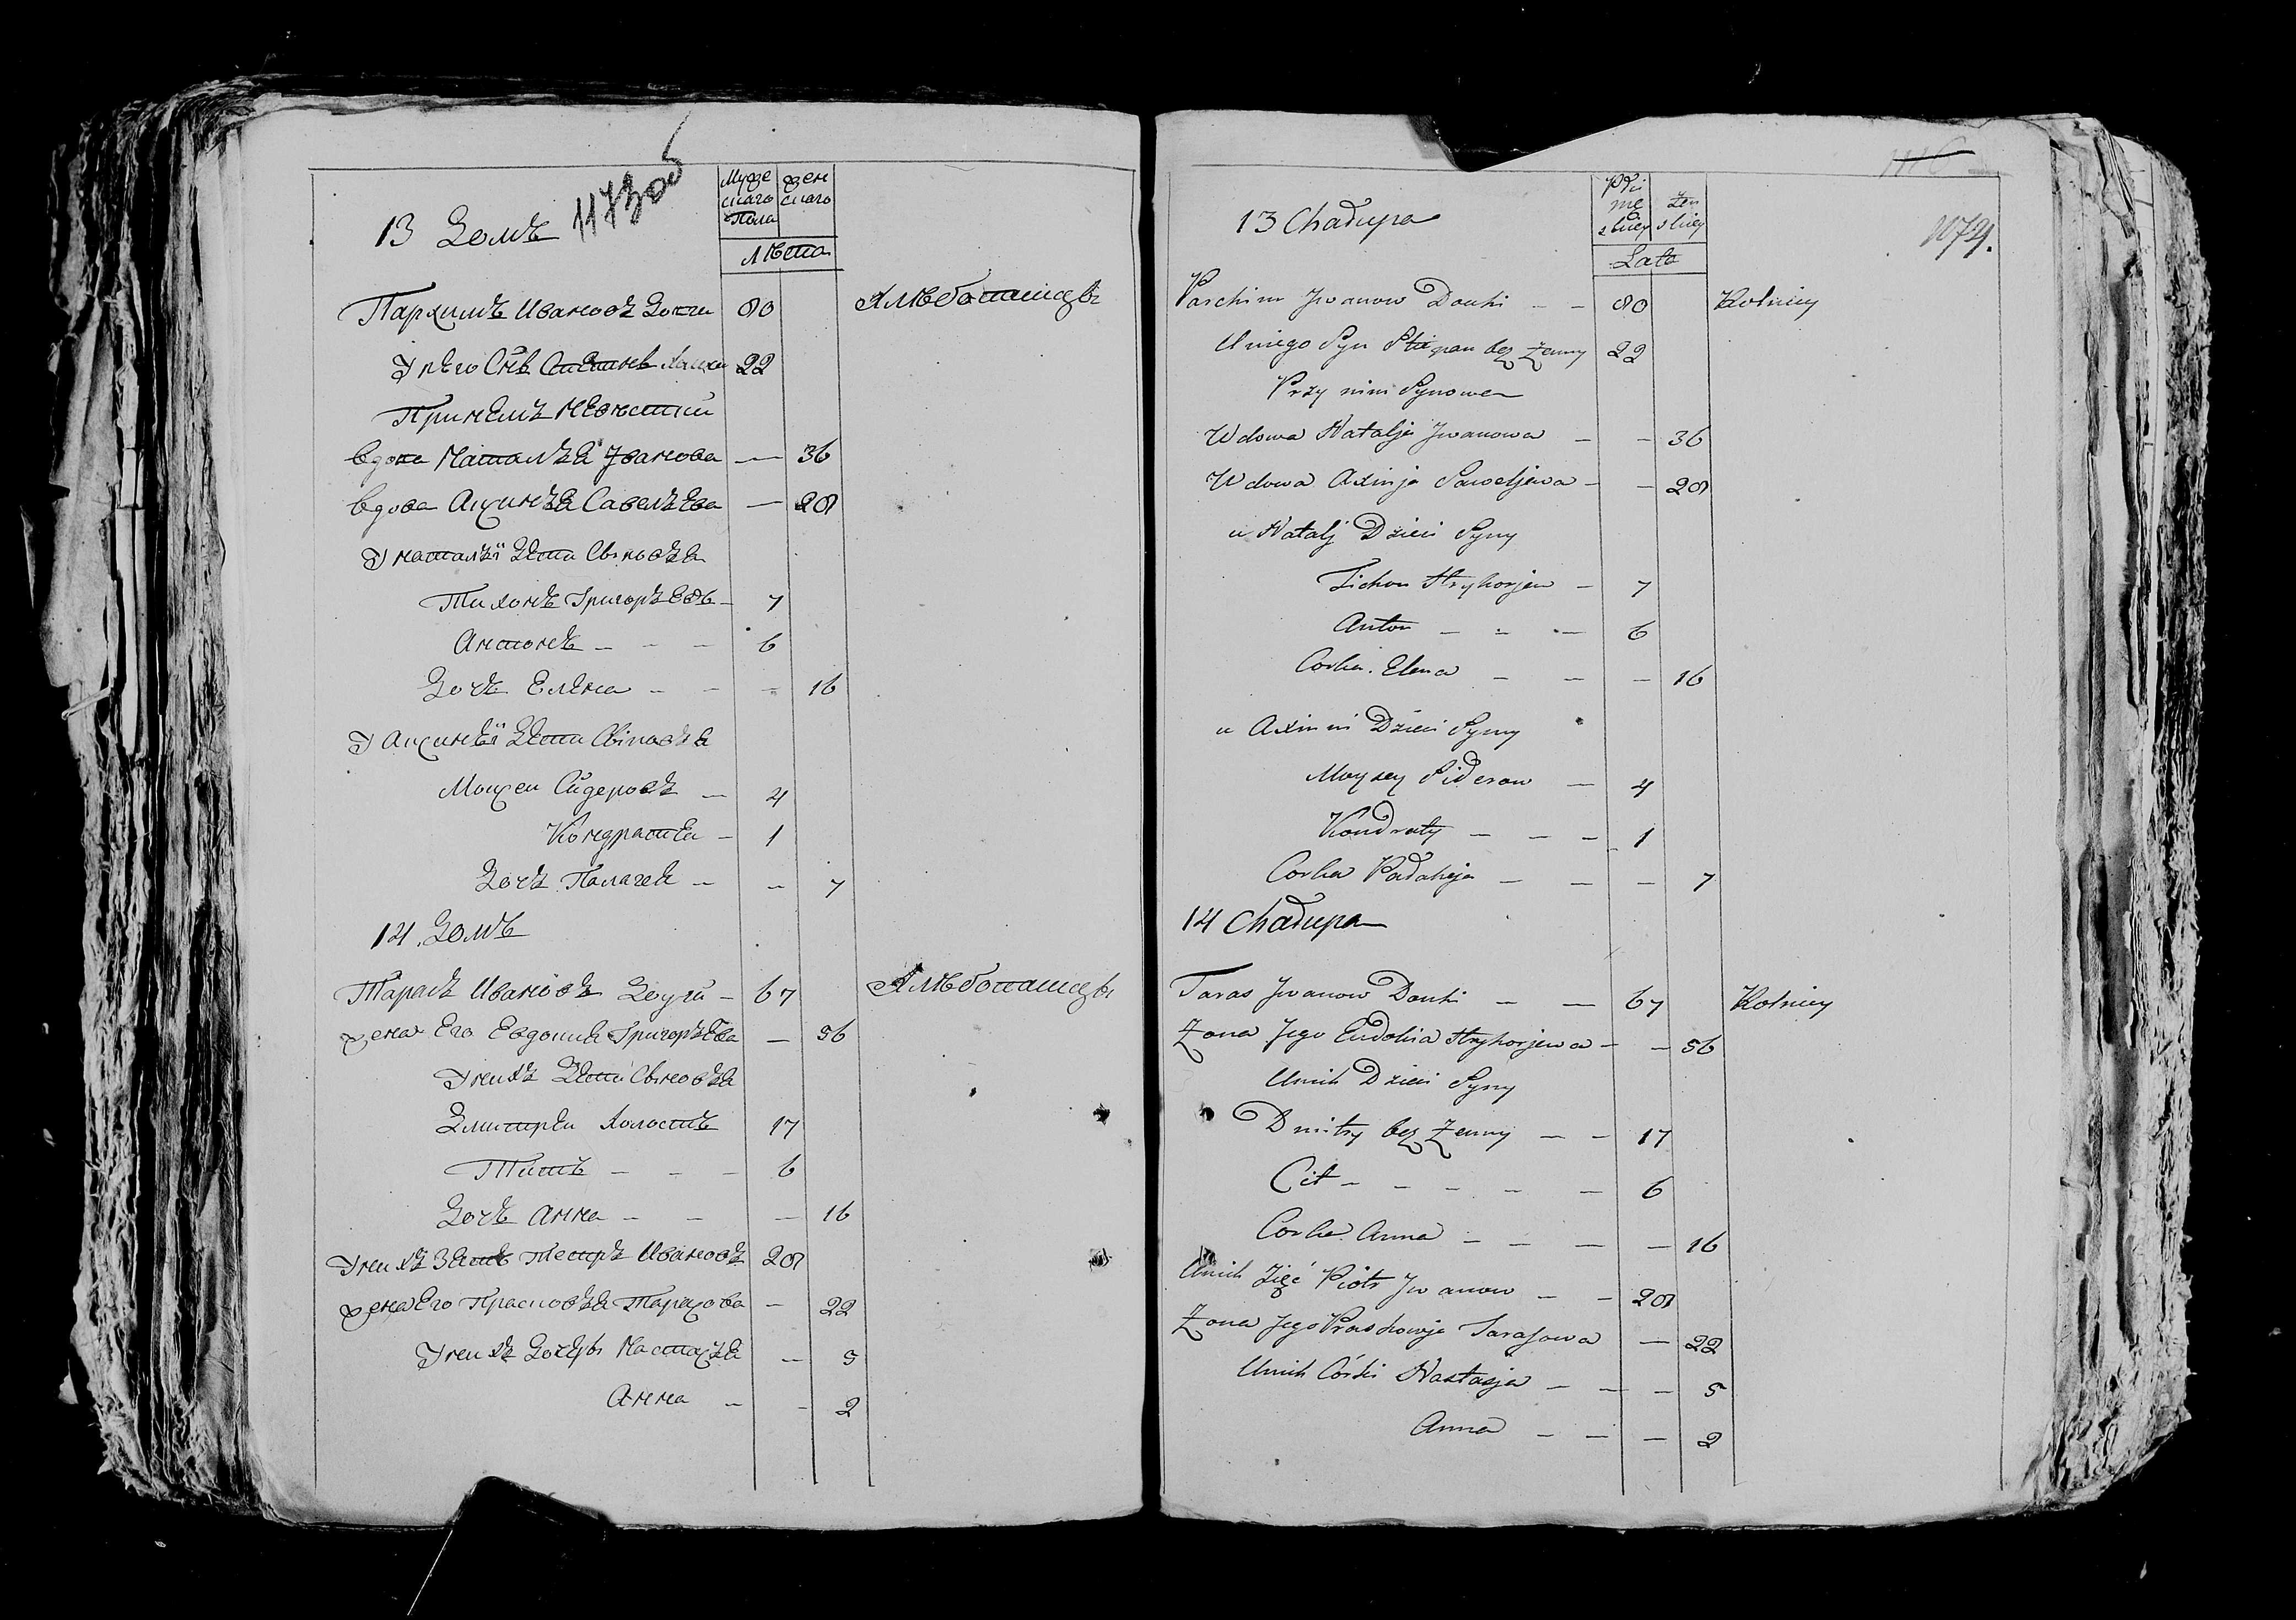 1173об
Муже
скаго
Пола
жен
скаго
Лѣта
13 Домъ
Пархимъ Ивановъ 80 Хлѣбопашецъ
У него Снъ Степанъ 22
При немъ невестки
вдова Наталъя Иванова — 36
вдова Аксинъя Савелъева — 28
У наталъи Дети Сыновъя
Тихонъ Григоръевъ — 7
Антонъ — — — 6
Дочъ Елена — — — 16
У Аксинъи Дети Сыновъя
Моисеи Сидеровъ — 4
Кондратеи — 1
Дочъ Палагея — — 7
14 Домъ
Тарасъ Ивановъ — 67 Хлѣбопашецъ
жена Его Евдокия Григоръева — 56
У нихъ Дети Сыновъя
Дмитреи Холостъ 17
Титъ — — — 6
Дочъ Анна — — — 16
У нихъ Зять Петръ Ивановъ 28
жена Его Прасковъя Тарасова — 22
У нихъ Дочеры Настасъя — 5
Анна — — 2
1174.
Męskiey
Żenskiey
Lata
13 Chałupa
Parchim Jwanow Douhi — — 80 Rolniey
U niego Syn Stiepan bez Żenny 22
Przy nim Synowe
Wdowa Natalja Jwanowa — — 36
Wdowa Axinja Saweljewa — — 28
u Natalj Dzieci Syny
Tichon Hryhorjew — 7
Anton — — — 6
Corka Elena — — — 16
u Axinni Dzieci Syny
Moysey Siderow — 4
Kondraty — — — 1
Corka Pałaheja — — — 7
14 Chałupa
Taras Jwanow Douhi — — 67 Rolniey
Żona Jego Eudokia Hryhorjewa — — 56
U nich Dzieci Syny
Dmitry bez Żenny — — 17
Cit — — — — — 6
Corka Anna — — — — 16
U nich Zięć Piotr Jwanow — — 28
Żona Jego Praskowja Tarasowa — 22
U nich Córki Nastasja — — — 5
Anna — — — 2